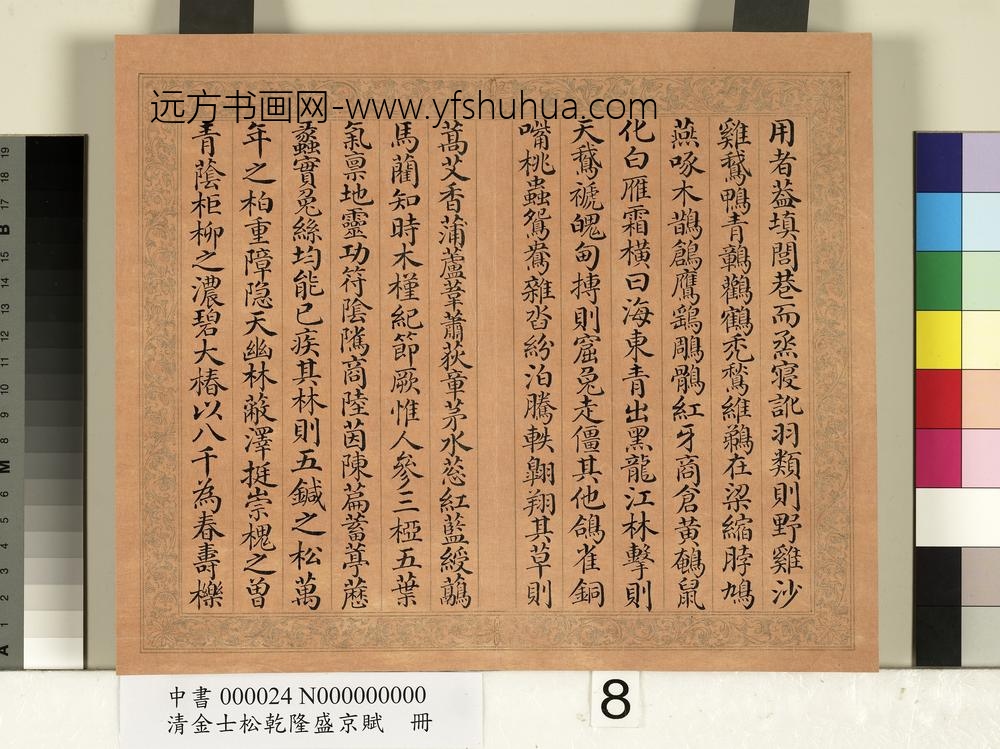 远方书画网-www.yfshuhua.com
用者葢填閭巷而烝寢訛羽類則野雞沙
雞鵝鴨青鶄鸛鶴禿鶖維鵜在梁縮脖鳩
燕啄木鵲鶬鷹鷂鵰鶻紅牙商倉黄鵪鼠
化白雁霜横曰海東青出黑龍江林擊則
天鵝褫魄甸摶則窟兔走僵其他鴿雀銅
嘴桃蟲鴛鴦雜沓紛泊騰軼翺翔其草則
萵艾香蒲蘆葦蕭荻章茅水葱紅藍綬虉
馬藺知時木槿紀節厥惟人參三椏五葉
氣禀地靈功符陰隲商陸茵陳萹蓄葶藶
蠡實兔絲均能已疾其林則五鍼之松萬
年之柏重障隐天幽林蔽澤挺崇槐之曾
青蔭柜柳之濃碧大椿以八千為春壽櫟
中書 000024 N000000000
清金士松乾隆盛京賦 冊
8
19
18
17
B
15
14
13
12
11
10
9
8
M
6
5
4
3
2
1
A